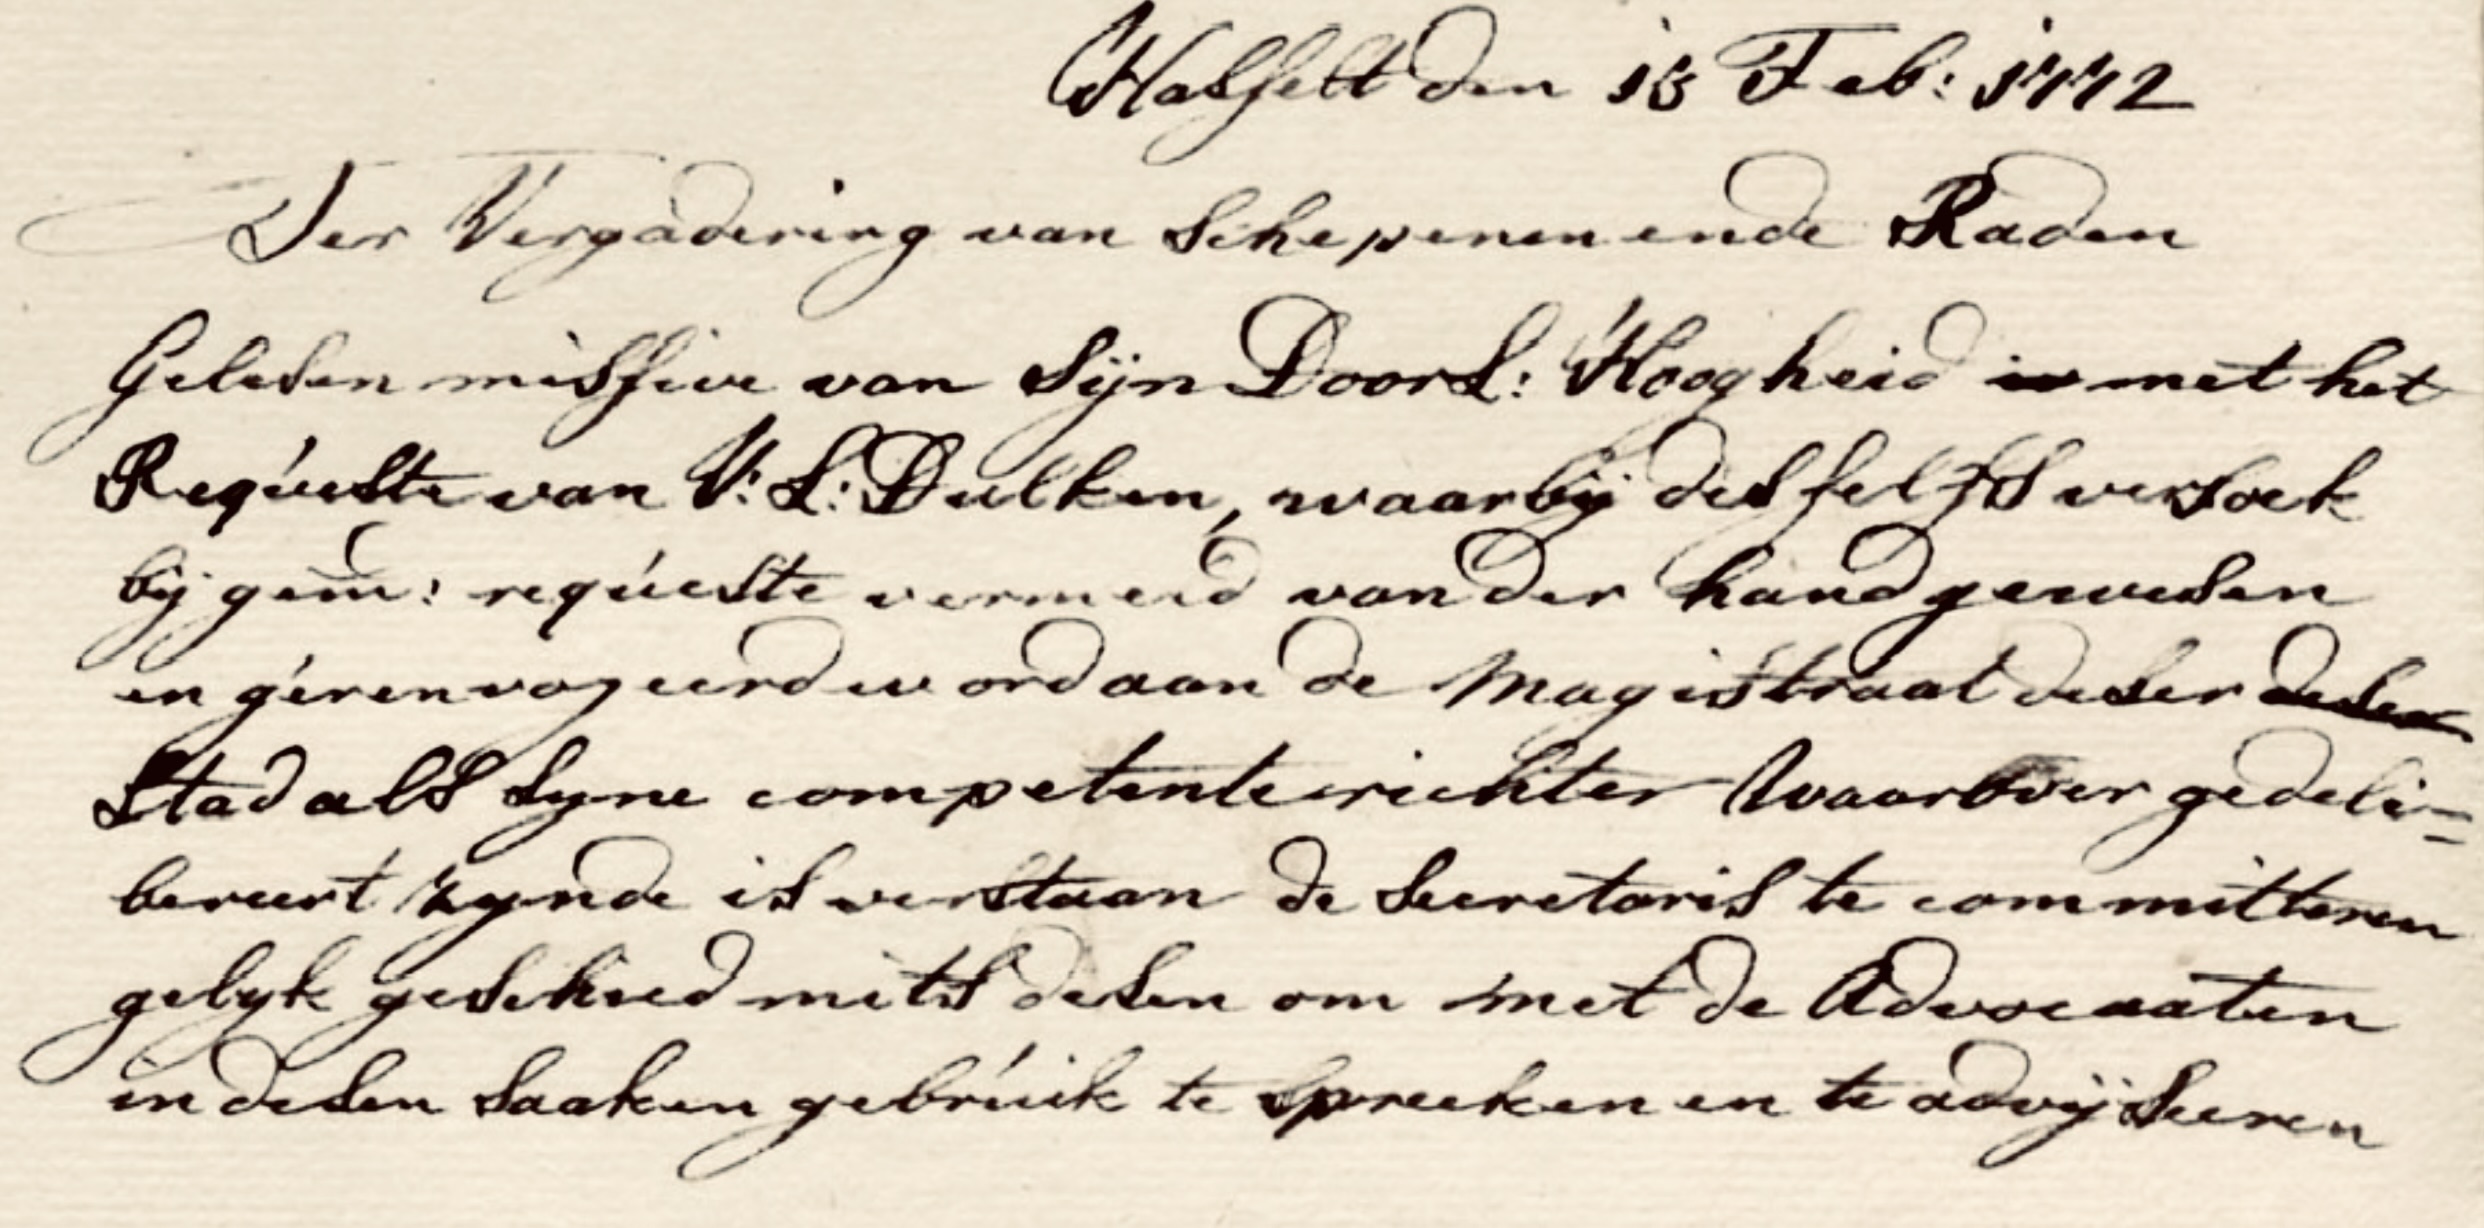 Hasselt den 15 Feb: 1772
Der Vergadering van Schepenen ende Raden
Gelesen missive van Sijn Doorl: Hoogheid in met het
Requeste van V: L: Dulken, waarbij desselfs versoek
bij gem̄: requeste vermeld van der hand gewesen
en gerenvojeerd word aan de Magistraat deser deser
Stad als Syne competente richter Waarover gedeli=
bereert zynde is verstaan de Secretaris te committeren
gelyk geschied mits desen om met de Advocaaten
in desen saaken gebruik te spreeken en te advijseeren